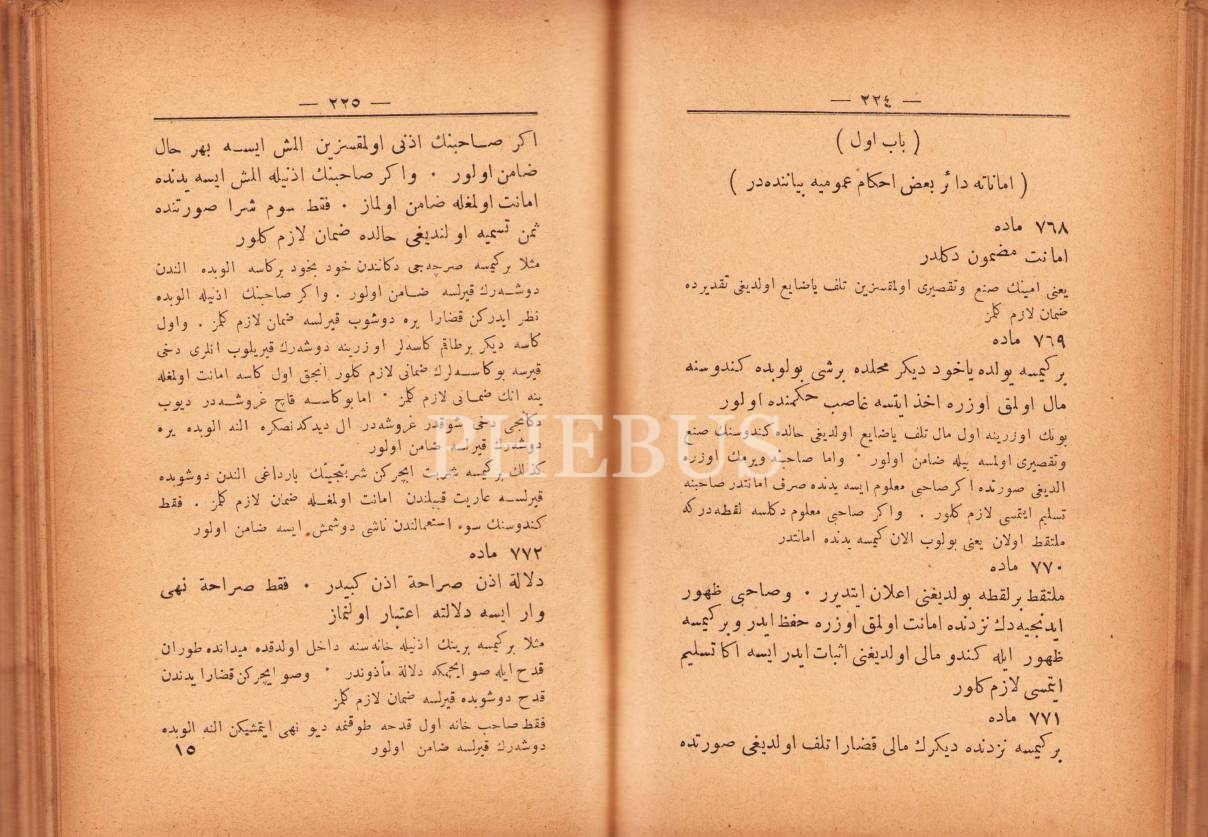 — ٢٢٤ —
( باب اول )
( اماناته دائر بعض احكام عموميه بياننده‌در )
٧٦٨ ماده
امانت مضمون دكلدر
يعنى امينك صنع وتقصيرى اولمقسزين تلف ياضايع اولديغى تقديرده
ضمان لازم كلز
٧٦٩ ماده
بركيمسه يولده ياخود ديكر محلده برشى بولوبده كندوسنه
مال اولمق اوزره اخذ ايتسه غاصب حكمنده اولور
بونك اوزرينه اول مال تلف ياضايع اولديغى حالده كندوسنك صنع
وتقصيرى اولمسه بيله ضامن اولور . واما صاحبنه ويرمك اوزره
الديغى صورتده اكر صاحبى معلوم ايسه يدنده صرف امانتدر صاحبنه
تسليم ايتمسى لازم كلور . واكر صاحبى معلوم دكلسه لقطه‌در كه
ملتقط اولان يعنى بولوب الان كيمسه يدنده امانتدر
٧٧٠ ماده
ملتقط برلقطه بولديغنى اعلان ايتديرر . وصاحبى ظهور
ايدنجيه‌دك نزدنده امانت اولمق اوزره حفظ ايدر وبركيمسه
ظهور ايله كندو مالى اولديغنى اثبات ايدر ايسه اكا تسليم
ايتمسى لازم كلور
٧٧١ ماده
بركيمسه نزدنده ديكرك مالى قضارا تلف اولديغى صورتده
— ٢٢٥ —
اكر صاحبنك اذنى اولمقسزين المش ايسه بهر حال
ضامن اولور . واكر صاحبنك اذنيله المش ايسه يدنده
امانت اولمغله ضامن اولماز . فقط سوم شرا صورتنده
ثمن تسميه اولنديغى حالده ضمان لازم كلور
مثلا بركيمسه صرچه‌جى دكانندن خود بخود بركاسه الوبده الندن
دوشه‌رك قيرلسه ضامن اولور . واكر صاحبنك اذنيله الوبده
نظر ايدركن قضارا يره دوشوب قيرلسه ضمان لازم كلز . واول
كاسه ديكر برطاقم كاسه‌لر اوزرينه دوشه‌رك قيريلوب انلرى دخى
قيرسه بوكاسه‌لرك ضمانى لازم كلور انجق اول كاسه امانت اولمغله
ينه انك ضمانى لازم كلز . امابوكاسه قاچ غروشه‌در ديوب
دكانجى دخى شوقدر غروشه‌در ال ديدكدنصكره النه الوبده يره
دوشه‌رك قيرلسه ضامن اولور
كذلك بركيمسه شربت ايچركن شربتجينك بارداغى الندن دوشوبده
قيرلسه عاريت قبيلندن امانت اولمغله ضمان لازم كلز . فقط
كندوسنك سوء استعمالندن ناشى دوشمش ايسه ضامن اولور
٧٧٢ ماده
دلالة اذن صراحة اذن كبيدر . فقط صراحة نهى
وار ايسه دلالته اعتبار اولنماز
مثلا بركيمسه برينك اذنيله خانه‌سنه داخل اولدقده ميدانده طوران
قدح ايله صو ايچمكه دلالة مأذوندر . وصو ايچركن قضارا يدندن
قدح دوشوبده قيرلسه ضمان لازم كلز
فقط صاحب خانه اول قدحه طوقنمه ديو نهى ايتمشيكن النه الوبده
دوشه‌رك قيرلسه ضامن اولور
١٥
PHEBUS